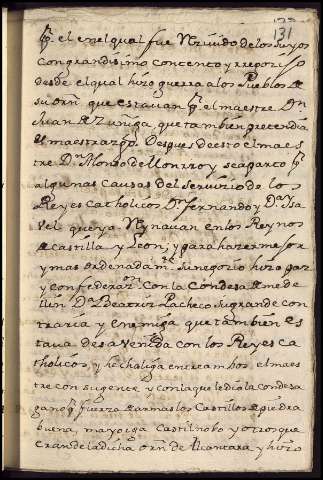 131
por el en el qual fue Recivido de los suyos
con grandisimo contento y rregocijo
desde el qual hizo guerra a los Pueblos de
su orn que estavan por el maestre Dn
Juan de Zuñiga, que tambien pretendia
el maestrazgo. Despues de esto el maes
tre Dn Alonso de Monrroy se aparto por
algunas causas del servicio de los
Reyes Catholicos Dn fernando y Da Isa
vel que ya Reynavan en los Reynos
de Castilla y Leon; y para hazer mejor
y mas ordenadamte su negocio hizo paz
y confederazon con la Condesa de mede
llin Da Beatriz Pacheco su grande con
traria y enemiga que tambien es
tava desavenida con los Reyes ca
tholicos, y hecha liga entre ambos, el maes
tre con su gente, y con la que le dio la condesa
gano por fuerza de armas los Castillos de piedra
buena, mayorga Castilnobo y otros que
eran de la dicha orn de Alcantara y hizo